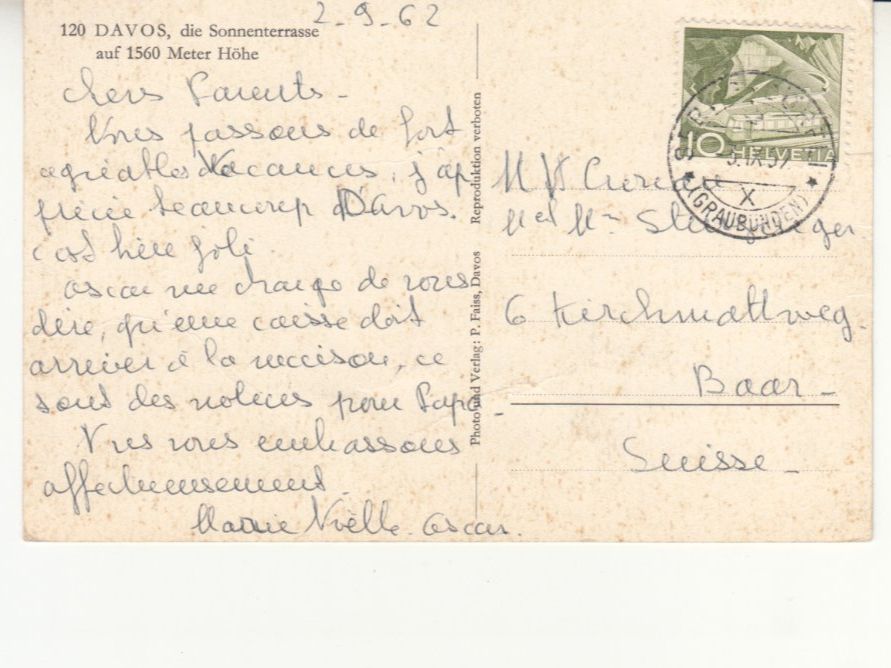 2-9-62
120 DAVOS, die Sonnenterrasse
auf 1560 Meter Höhe
Chers Parents -
Nous passons de fort
agréables Vacances, j'ap
précie beaucoup Davos.
c'est très joli.
Oscar me charge de vous
dire, qu'une caisse doit
arriver à la maison, ce
sont des pour Papa -
Nous vous embrassons
affectueusement
Marie Noëlle. Oscar.
Reproduktion verboten
Photo und Verlag: P. Faiss, Davos
10 HELVETIA
X
(GRAUBÜNDEN)
et
6 Kirchmattweg.
Baar -
Suisse -